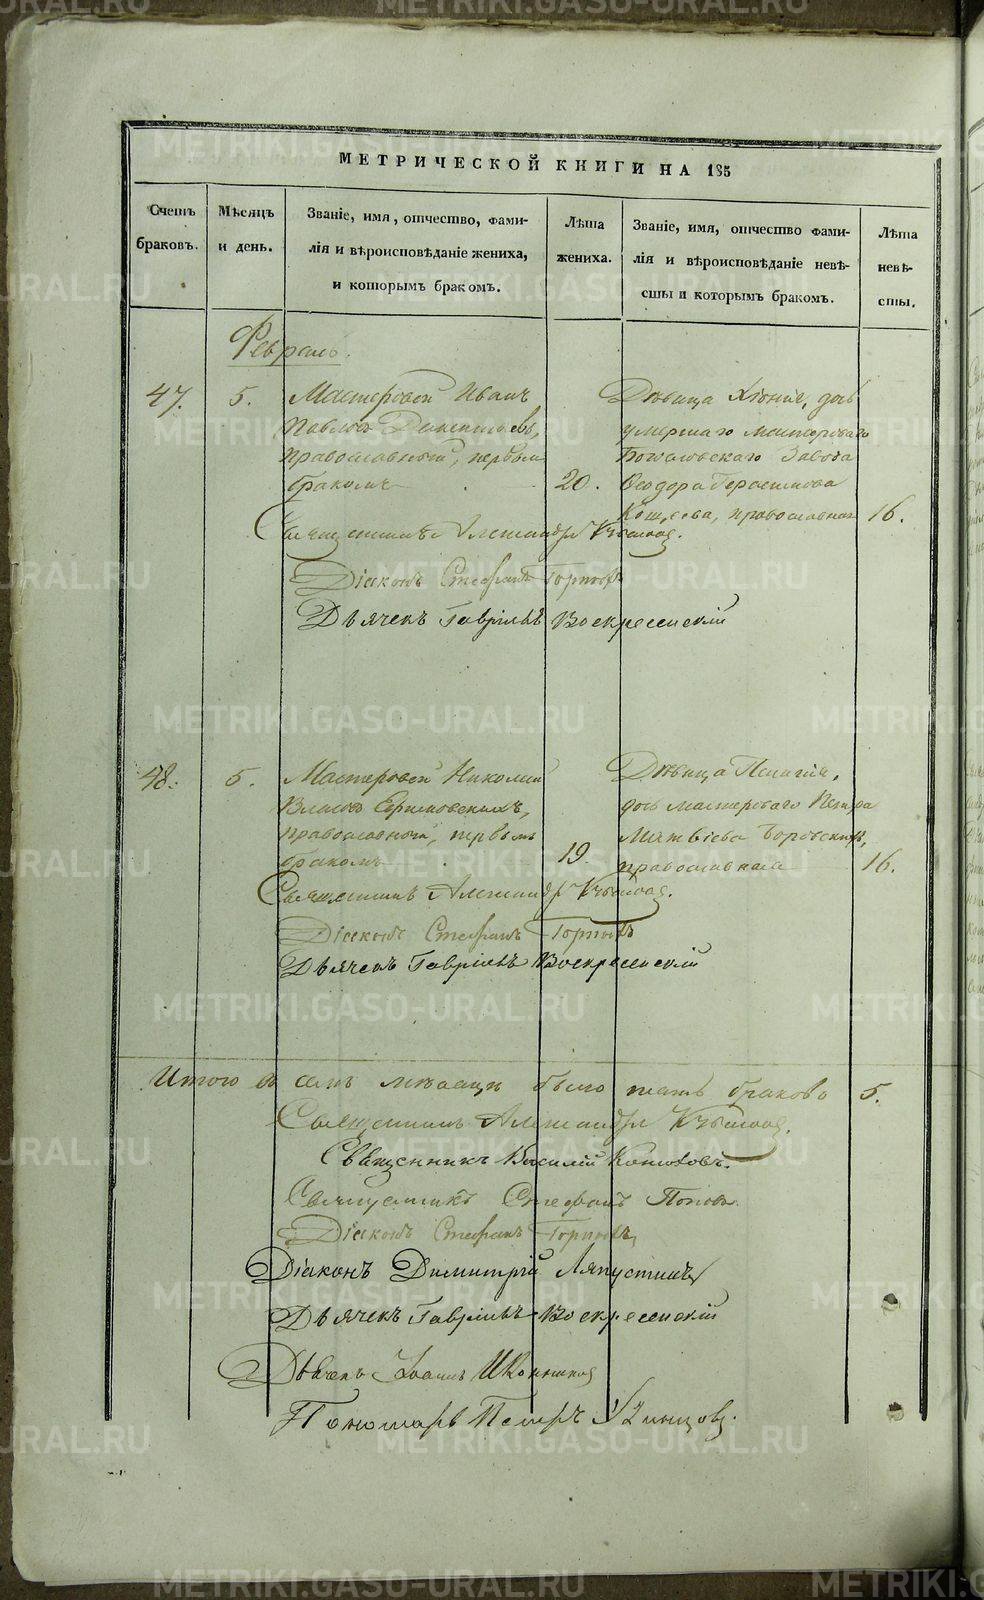 МЕТРИЧЕСКОЙ КНИГИ НА 185
Счетъ браковъ.
Мѣсяцъ и день.
Званіе, имя, отчество, фами-
лія и вѣроисповѣданіе жениха,
и которымъ бракомъ.
Лѣта жениха.
Званіе, имя, отчество фами-
лія и вѣроисповѣданіе невѣ-
сты и которымъ бракомъ.
Лѣта невѣ-
сты.
Февраль.
47. 5. Мастеровой Иванъ
Павловъ
православный, первымъ
бракомъ 20.
Дѣвица дочь
умершаго мастероваго
Богословскаго Завода
Ѳеодора Герасимова
православная 16.
Священникъ Александръ
Діаконъ Стефанъ
Дьячекъ Гавріилъ Воскресенскій
48. 5. Мастеровой Николай
Власовъ
православный, первымъ
бракомъ 19
Дѣвица
дочь мастероваго Петра
Матвѣева
православная 16.
Священникъ Александръ
Діаконъ Стефанъ
Дьячекъ Гавріилъ Воскресенскій
Итого въ семъ мѣсяцѣ было пять браковъ 5.
Священникъ Александръ
Священникъ Василій Конюховъ.
Священникъ Стефанъ Поповъ
Діаконъ Стефанъ
Діаконъ Димитрій Ляпустинъ
Дьячекъ Гавріилъ Воскресенскій
Дьячекъ Іоаннъ Иконниковъ
Пономарь Петръ
METRIKI.GASO-URAL.RU